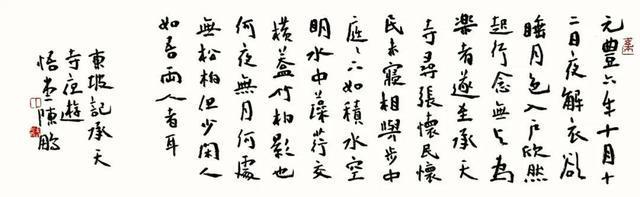 元豐六年十月十
二日夜解衣欲
睡月色入户欣然
起行念無与為
樂者遂至承天
寺尋張懷民懷
民未寢相與步中
庭〻下如積水空
明水中藻荇交
橫蓋竹柏影也
何夜無月何處
無松柏但少閑人
如吾兩人者耳
東坡記承天
寺夜遊
悟堂陳鵬